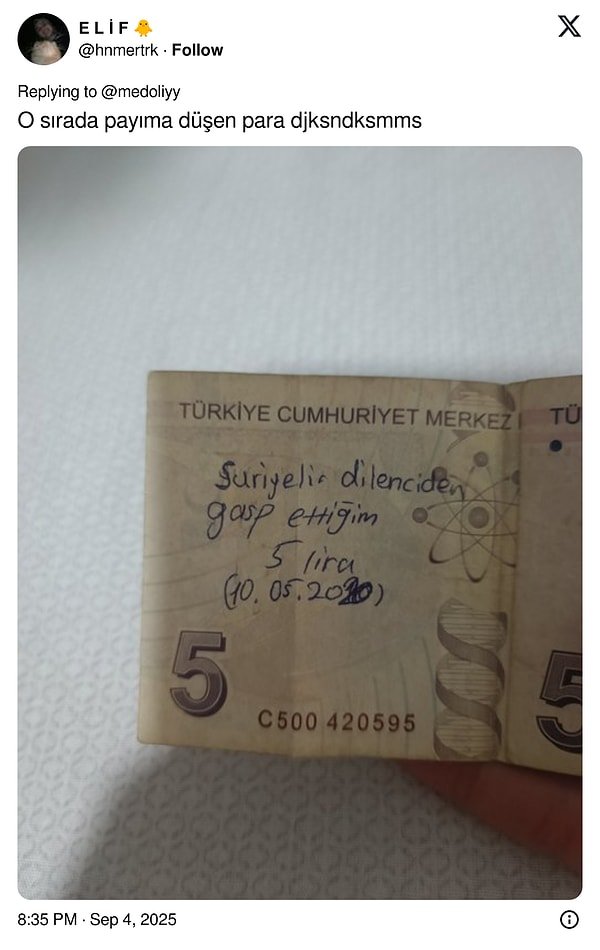 E L İ F 🐥
@hnmertrk · Follow
Replying to @medoliyy
O sırada payıma düşen para djksndksmms
TÜRKİYE CUMHURİYET MERKEZ
TÜ
Suriyeli dilenciden
gasp ettiğim
5 lira
(10.05.2020)
5
5
C500 420595
8:35 PM · Sep 4, 2025